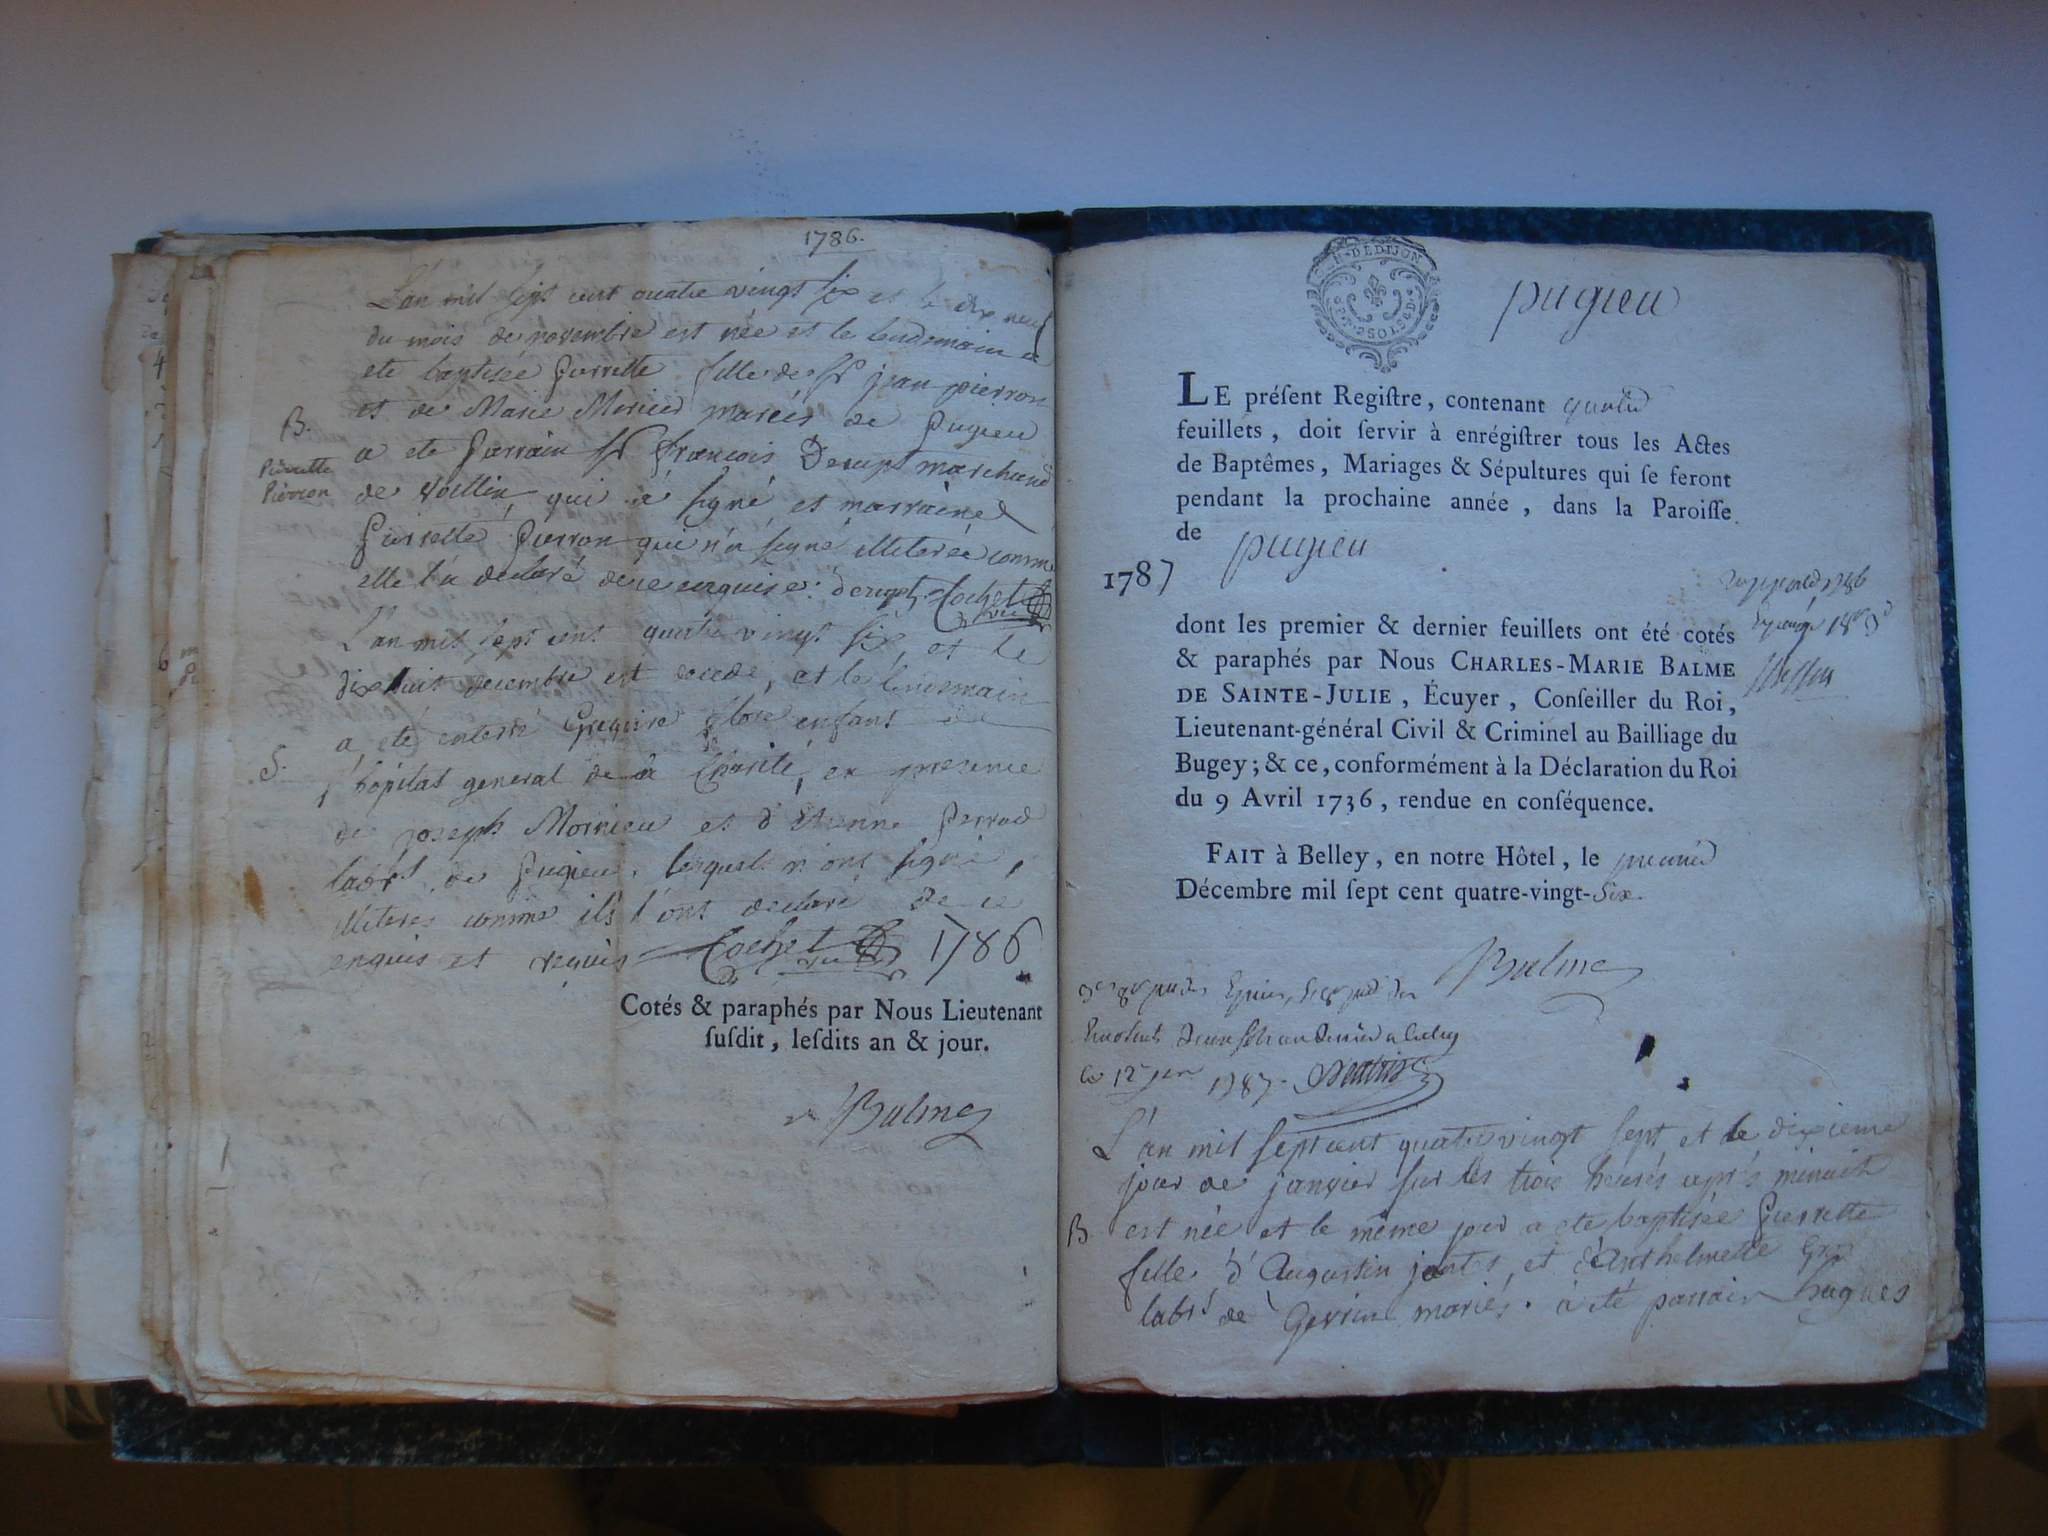 1786.
L'an mil sept cent quatre vingt six et le dix neuf
du mois de novembre est née et le lendemain a
ete baptisée pierrette fille de sr jean pierron
et de Marie mariés de pugieu
B.
a ete parrain sr françois Decrept marchand
Pierrette
Pierron
de qui a signé et marraine
pierrette pierron qui n'a signé illiterée comme
elle l'a declaré de ce enquise. decrept Cochet
L'an mil sept cent quatre vingt six, et le
dix huit decembre est decede, et le lendemain
a, été enterré Gregoire enfant de
S.
l'hôpital general de la Charité, en presence
de joseph Moirieu et d'Etienne perrod
labrs de pugieu, lesquels n'ont signé,
illiteres comme ils l'ont declare de ce
enquis et requis Cochet 1786
Cotés & paraphés par Nous Lieutenant
ſuſdit, leſdits an & jour.
Balme
N·DE DIJON
2 SOLS
pugieu
LE préſent Regiſtre, contenant quatre
feuillets, doit ſervir à enrégiſtrer tous les Actes
de Baptêmes, Mariages & Sépultures qui ſe feront
pendant la prochaine année, dans la Paroiſſe
de pugieu
1787
dont les premier & dernier feuillets ont été cotés
& paraphés par Nous CHARLES-MARIE BALME
DE SAINTE-JULIE, Écuyer, Conſeiller du Roi,
Lieutenant-général Civil & Criminel au Bailliage du
Bugey; & ce, conformément à la Déclaration du Roi
du 9 Avril 1736, rendue en conſéquence.
FAIT à Belley, en notre Hôtel, le premier
Décembre mil ſept cent quatre-vingt-Six.
Balme
le 12 1787.
L'an mil sept cent quatre vingt sept et le dixieme
jour de janvier sur les trois heures après minuit
B
est née et le même jour a ete baptisée pierrette
fille d'Augustin et d'Anthelmette
labr de mariés. a été parrain hugues